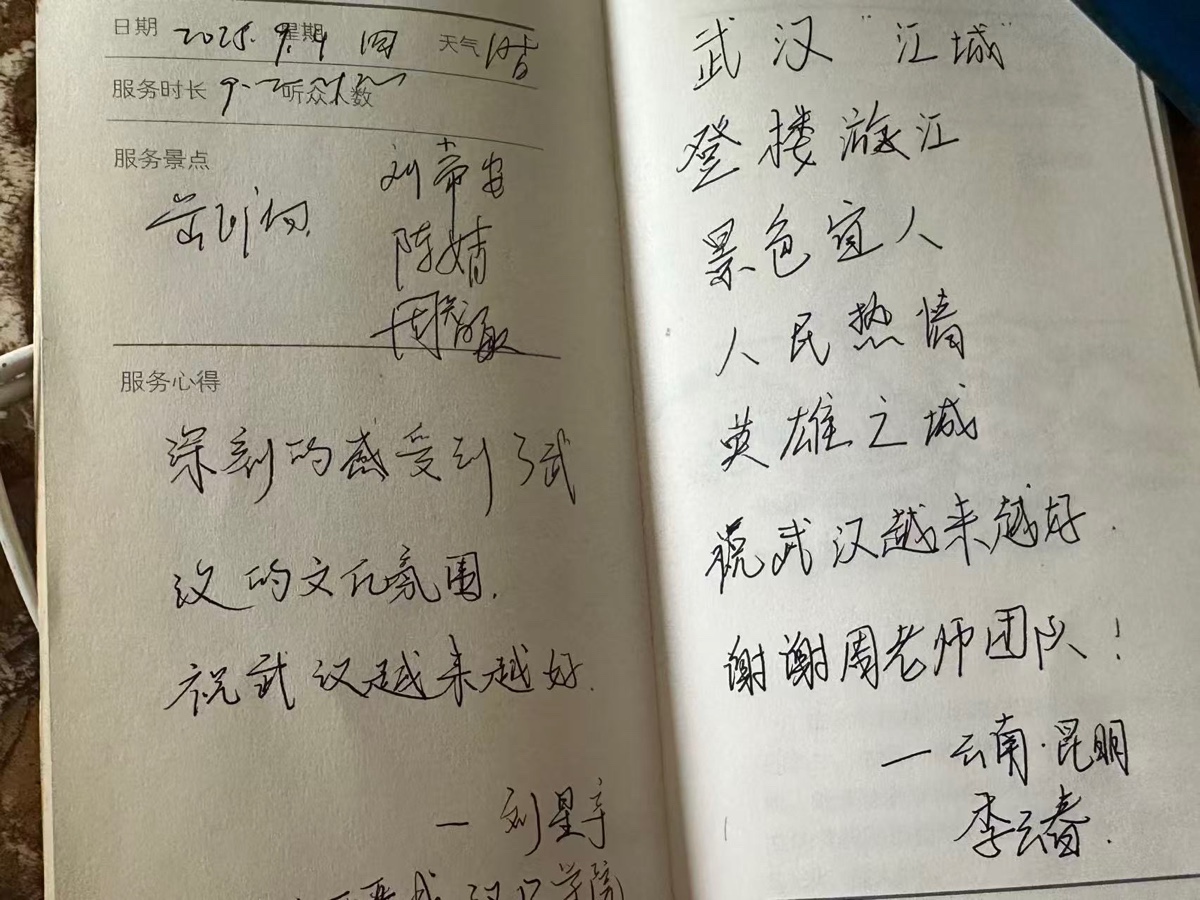 日期 2025.9.4 星期 四 天气 晴
服务时长 9- 听众人数
服务景点
刘常安
陈婧
周敏
服务心得
深刻的感受到了武
汉的文化氛围.
祝武汉越来越好.
— 刘星宇
汉口学院
武汉“江城”
登楼游江
景色宜人
人民热情
英雄之城
祝武汉越来越好.
谢谢周老师团队!
— 云南·昆明
李云春.